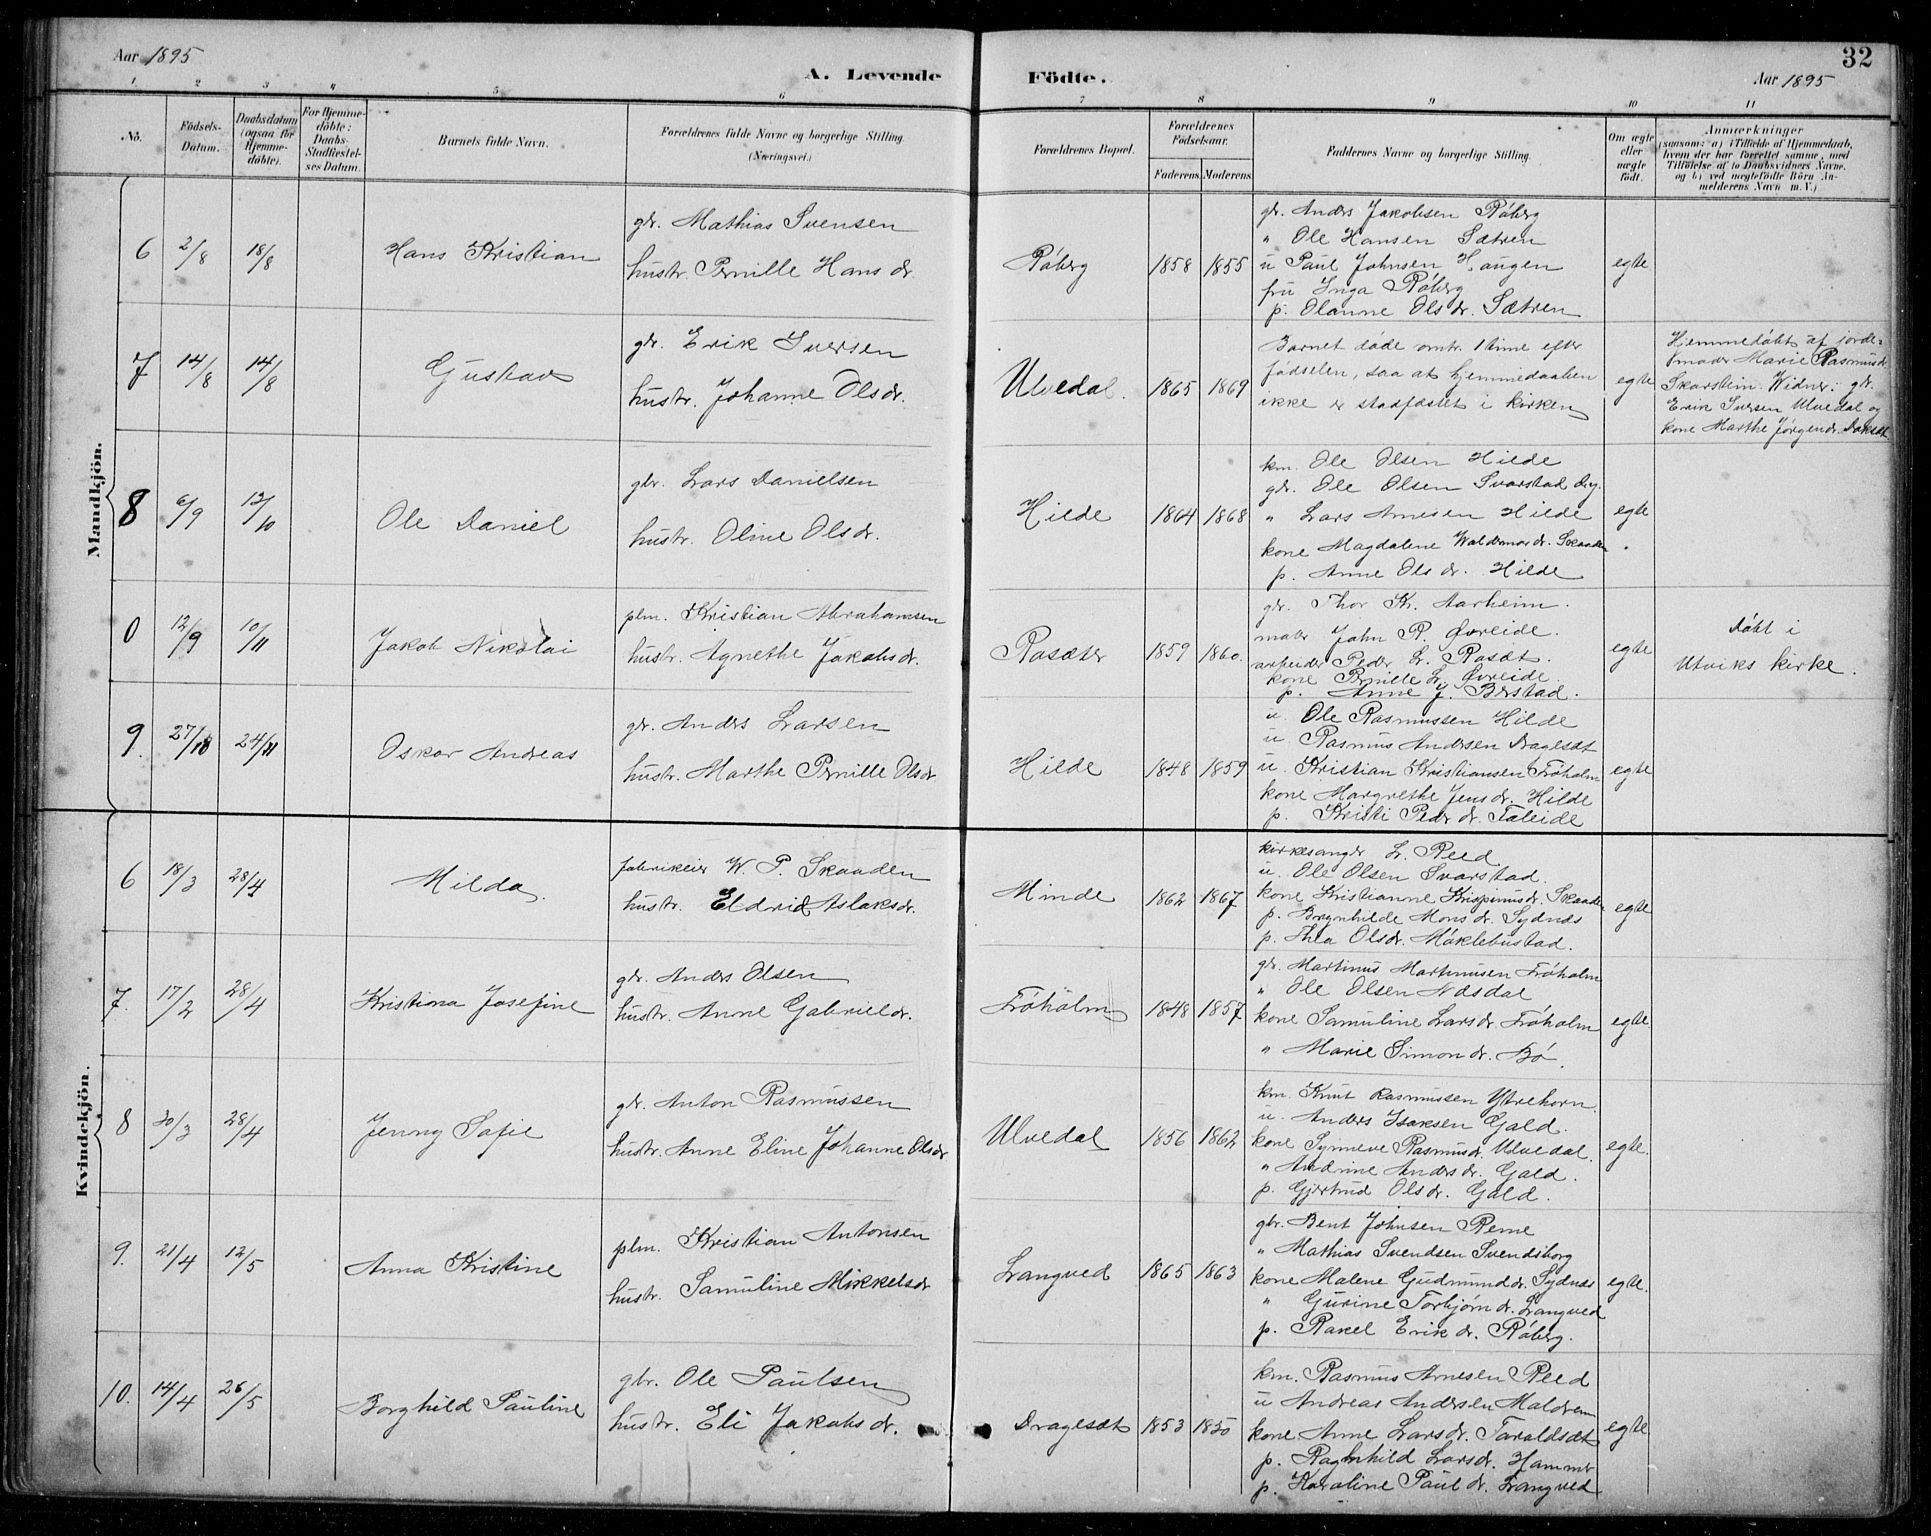 32
Aar 1895
A. Levende Födte.
Aar 1895
1 2 3 4 5 6 7 8 9 10 11
No.
Födsels-Datum.
Daabsdatum (ogsaa for Hjemme-døbte).
For Hjemme-døbte: Daabs-Stadfæstel-ses Datum.
Barnets fulde Navn.
Forældrenes fulde Navne og borgerlige Stilling.
(Næringsvei.)
Forældrenes Bopæl.
Forældrenes Födselsaar.
Faderens. Moderens.
Faddernes Navne og borgerlige Stilling.
Om ægte eller uægte født.
Anmærkninger
(saasom: a) i Tilfælde af Hjemmedaab, hvem der har forrettet samme, med Tilføielse af to Daabsvidners Navne, og b) ved uægtefødte Børn An-melderens Navn m. V.)
Mandkjön.
6 2/8 18/8 Hans Kristian
gbr. Mathias Svensen
hustr. Pernille Hansdr.
Røberg 1858 1855
gbr. Anders Jakobsen Røberg
" Ole Hansen Sætren
u Paul Johnsen Haugen
fru Inga Røberg
p. Olanne Olsdr. Sætren
egte
7 14/8 14/8 Gustav
gbr. Erik Iversen
hustr. Johanne Olsdr.
Ulvedal. 1865 1869
Barnet døde omtr. 1 time efter
fødselen, saa at hjemmedaaben
ikke er stadfæstet i kirken
egte
Hjemmedøbt af jorde-
moder Marie Rasmusdr.
Skarstein. Vidner: gbr.
Erik Iversen Ulvedal og
kone Marthe Jørgendr. Dokset.
8 6/9 13/10 Ole Daniel
gbr. Lars Danielsen
hustr. Oline Olsdr.
Hilde 1864 1868
km. Ole Olsen Hilde
gbr. Ole Olsen Svarstad
" Lars Arnesen Hilde
kone Magdalene Waldemardr. Skaaden
p. Anne Olsdr. Hilde
egte
0 12/9 10/11 Jakob Nikolai
plm. Kristian Abrahamsen
hustr. Agnethe Jakobsdr.
Rosæter 1859 1860.
gbr. Thor Kr. Aarheim.
maler John R. Øvreide.
arbeider Peder L. Rosæt.
kone Pernille L. Øvreide.
p. Anne J. Berstad.
egte
Døbt i
Utviks kirke.
9. 27/10 24/11 Oskar Andreas
gbr. Anders Larsen
hustr. Marthe Pernille Olsdr
Hilde 1848 1859
u. Ole Rasmussen Hilde
u. Rasmus Andersen Dragesæt
u. Kristian Kristiansen Frøholm
kone Margrethe Jensdr. Hilde
p. Kristi Pedrdr. Faleide
egte
Kvindekjön.
6 18/3 28/4 Milda
fabrikeier W. P. Skaaden
hustr. Eldrid Aslaksdr.
Minde 1862 1867
kirkesanger L. Reed
u. Ole Olsen Svarstad.
kone Kristianne Krispinusdr. Skaaden
p. Brynhilde Monsdr. Sydnæs
p. Thea Olsdr. Møklebustad.
egte
7. 17/2 28/4 Kristiana Josefine
gbr. Anders Olsen
hustr. Anne Gabrieldr.
Frøholm 1848 1857
gbr. Martinus Martinusen Frøholm
" Ole Olsen Nosdal
kone Samuline Larsdr. Frøholm
" Marie Simondr. Bø.
egte
8 30/3 28/4 Jenny Sofie
gbr. Anton Rasmussen
hustr. Anne Eline Johanne Olsdr
Ulvedal 1856 1862
km. Knut Rasmussen Ytrehorn.
u. Anders Isaksen Gald.
kone Synneve Rasmusdr. Ulvedal.
" Andrine Andersdr. Gald.
p. Gjertrud Olsdr. Gald.
egte.
9. 21/4 12/5 Anna Kristine
plm. Kristian Antonsen
hustr. Samuline Mikkelsdr
Langved 1865 1863
gbr. Bent Johnsen Reme
" Mathias Svendsen Svendsborg
kone Malene Gudmunddr. Sydnæs
" Gurine Torbjørndr. Langved
p. Rakel Erikdr. Røberg.
egte.
10. 14/4 26/5 Borghild Pauline
gbr. Ole Paulsen
hustr. Eli Jakobsdr.
Dragesæt 1853 1850
km. Rasmus Arnesen Reed
u Andreas Andersen Maldrem
kone Anne Larsdr. Taraldsæt
p. Ragnhild Larsdr. Hammer
p. Karoline Pauldr. Langved
egte